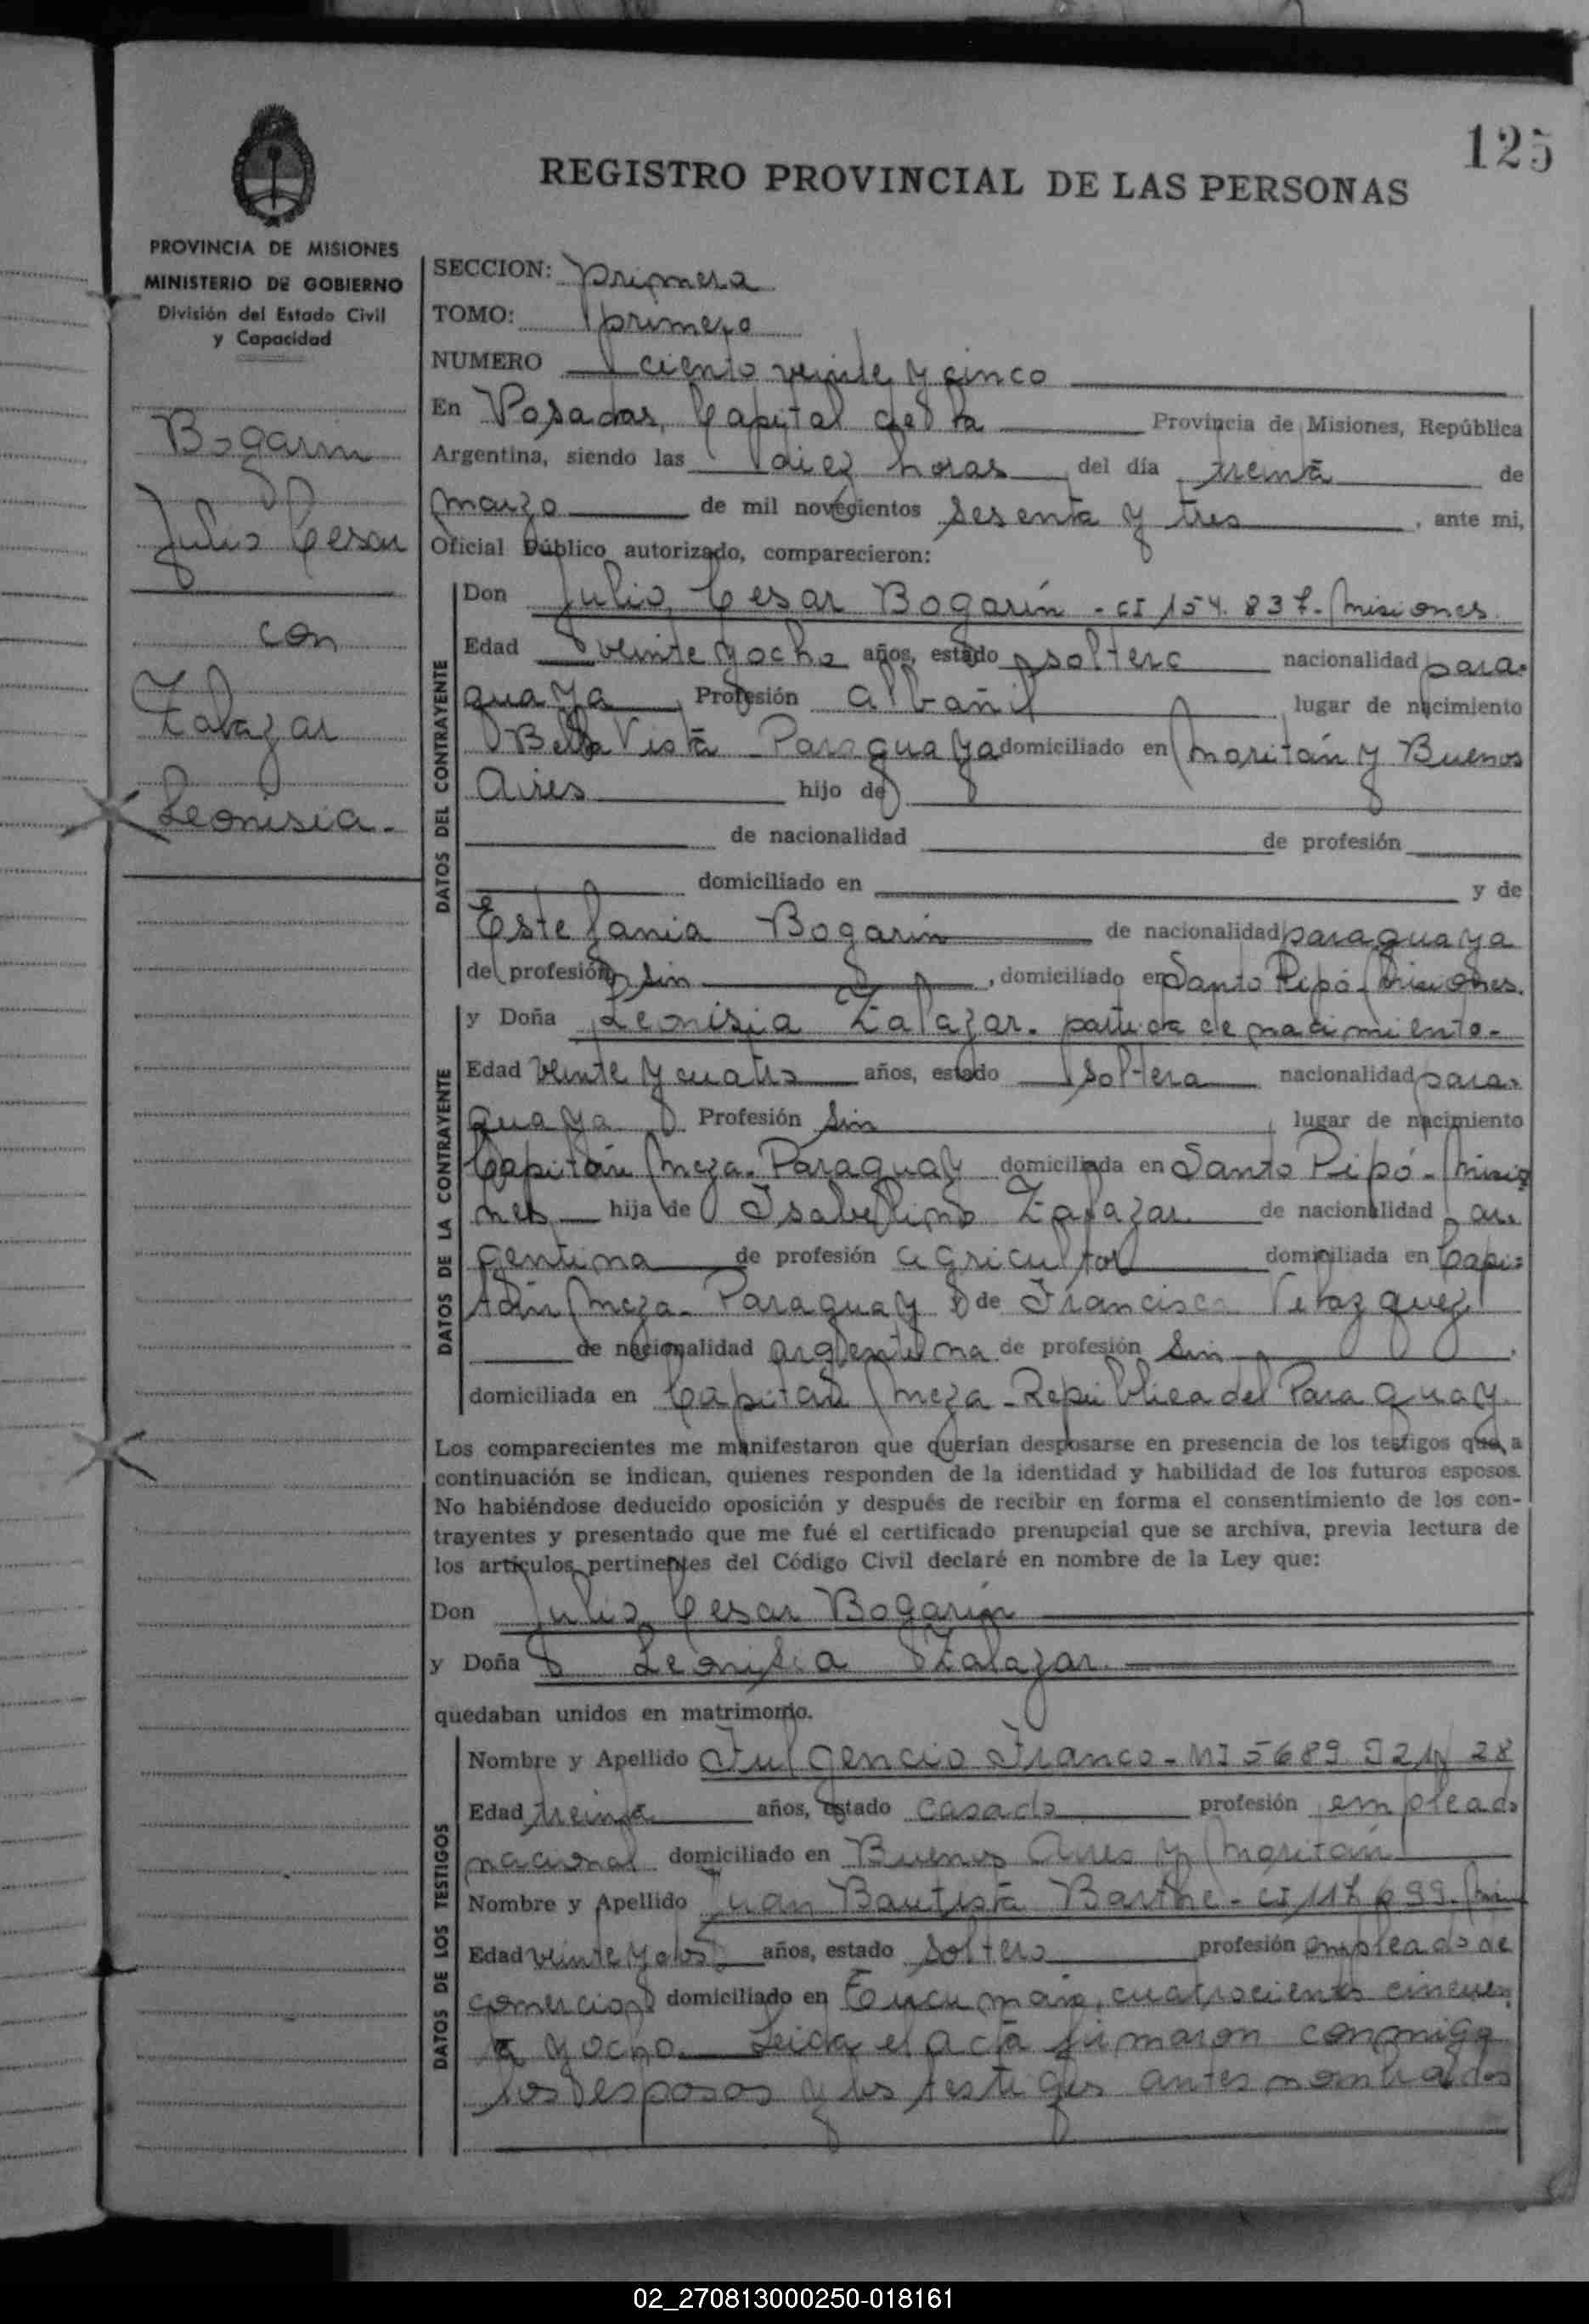 125
REGISTRO PROVINCIAL DE LAS PERSONAS
PROVINCIA DE MISIONES
MINISTERIO DE GOBIERNO
División del Estado Civil
y Capacidad
Bogarin
Julio Cesar
con
Zalazar
Leonisia.
SECCION: primera
TOMO: primero
NUMERO ciento veinte y cinco
En Posadas, Capital de la Provincia de Misiones, República
Argentina, siendo las diez horas del día treinta de
marzo de mil novecientos sesenta y tres, ante mi,
Oficial Público autorizado, comparecieron:
DATOS DEL CONTRAYENTE
Don Julio Cesar Bogarín - CI 154.837. Misiones.
Edad veinte y ocho años, estado soltero nacionalidad para-
guaya, Profesión albañil, lugar de nacimiento
Bella Vista - Paraguaya domiciliado en Maritán y Buenos
Aires hijo de
de nacionalidad de profesión
domiciliado en y de
Estefania Bogarin de nacionalidad paraguaya
de profesión sin, domiciliado en Santo Pipó - Misiones.
DATOS DE LA CONTRAYENTE
y Doña Leonisia Zalazar. partida de nacimiento.
Edad veinte y cuatro años, estado soltera nacionalidad para-
guaya Profesión sin, lugar de nacimiento
Capitán Meza - Paraguay domiciliada en Santo Pipó - Misio
nes hija de Isabelino Zalazar de nacionalidad ar-
gentina de profesión agricultor domiciliada en Capi-
tán Meza - Paraguay y de Francisca Velazquez
de nacionalidad argentina de profesión sin,
domiciliada en Capitán Meza - República del Paraguay.
Los comparecientes me manifestaron que querían desposarse en presencia de los testigos que a
continuación se indican, quienes responden de la identidad y habilidad de los futuros esposos.
No habiéndose deducido oposición y después de recibir en forma el consentimiento de los con-
trayentes y presentado que me fué el certificado prenupcial que se archiva, previa lectura de
los artículos pertinentes del Código Civil declaré en nombre de la Ley que:
Don Julio Cesar Bogarín
y Doña Leonisia Zalazar.
quedaban unidos en matrimonio.
DATOS DE LOS TESTIGOS
Nombre y Apellido Fulgencio Franco - MI 5689
Edad treinta años, estado casado profesión empleado
nacional domiciliado en Buenos Aires y Maritán
Nombre y Apellido Juan Bautista Barthe - CI 117.699. Mi
Edad veinte y dos años, estado soltero profesión empleado de
comercio domiciliado en Tucumán, cuatrocientos cincuen
ta y ocho. Leida el acta firmaron conmigo
los esposos y los testigos antes nombrados
02_270813000250-018161